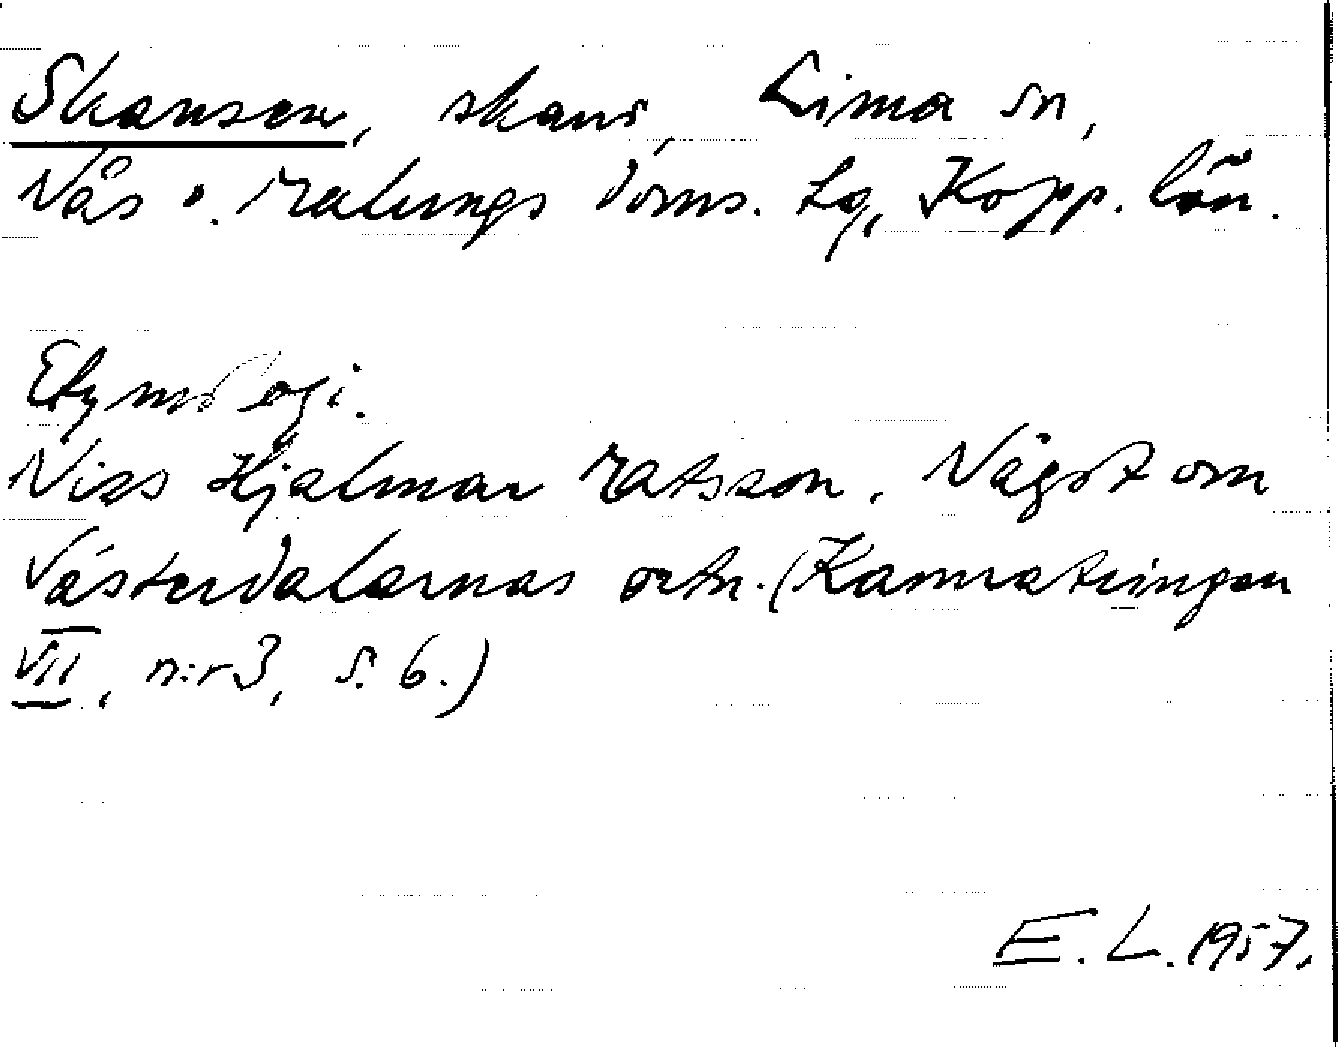 Skansen, skans, Lima sn,
Nås o. Malungs doms. tg, Kopp. län.
Etymologi.
Niss Hjalmar Matsson, Något om
Västerdalarnas ortn. (Kamratringen
VII, n:r 3, s. 6.)
E. L. 1957.